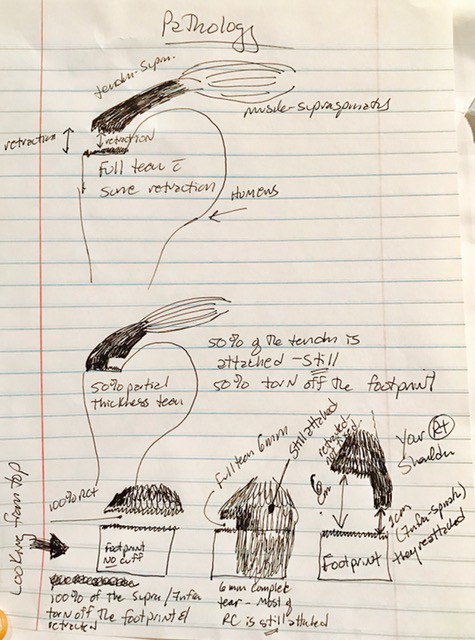 Pathology
tendon-Supra.
muscle-supraspinatus
retraction
retraction
Full tear c̄
some retraction
Humerus
50% of the tendon is
attached - still
50% torn off the footprint
50% partial
thickness tear
Looking from top
100% RCT
Footprint
No cuff
100% of the Supra/Infra
torn off the footprint &
retracted
Full tear 6mm
Still attached
6mm complete
tear - Most of
RC is still attached
Your Rt
Shoulder
retracted
Footprint
1cm
they reattached